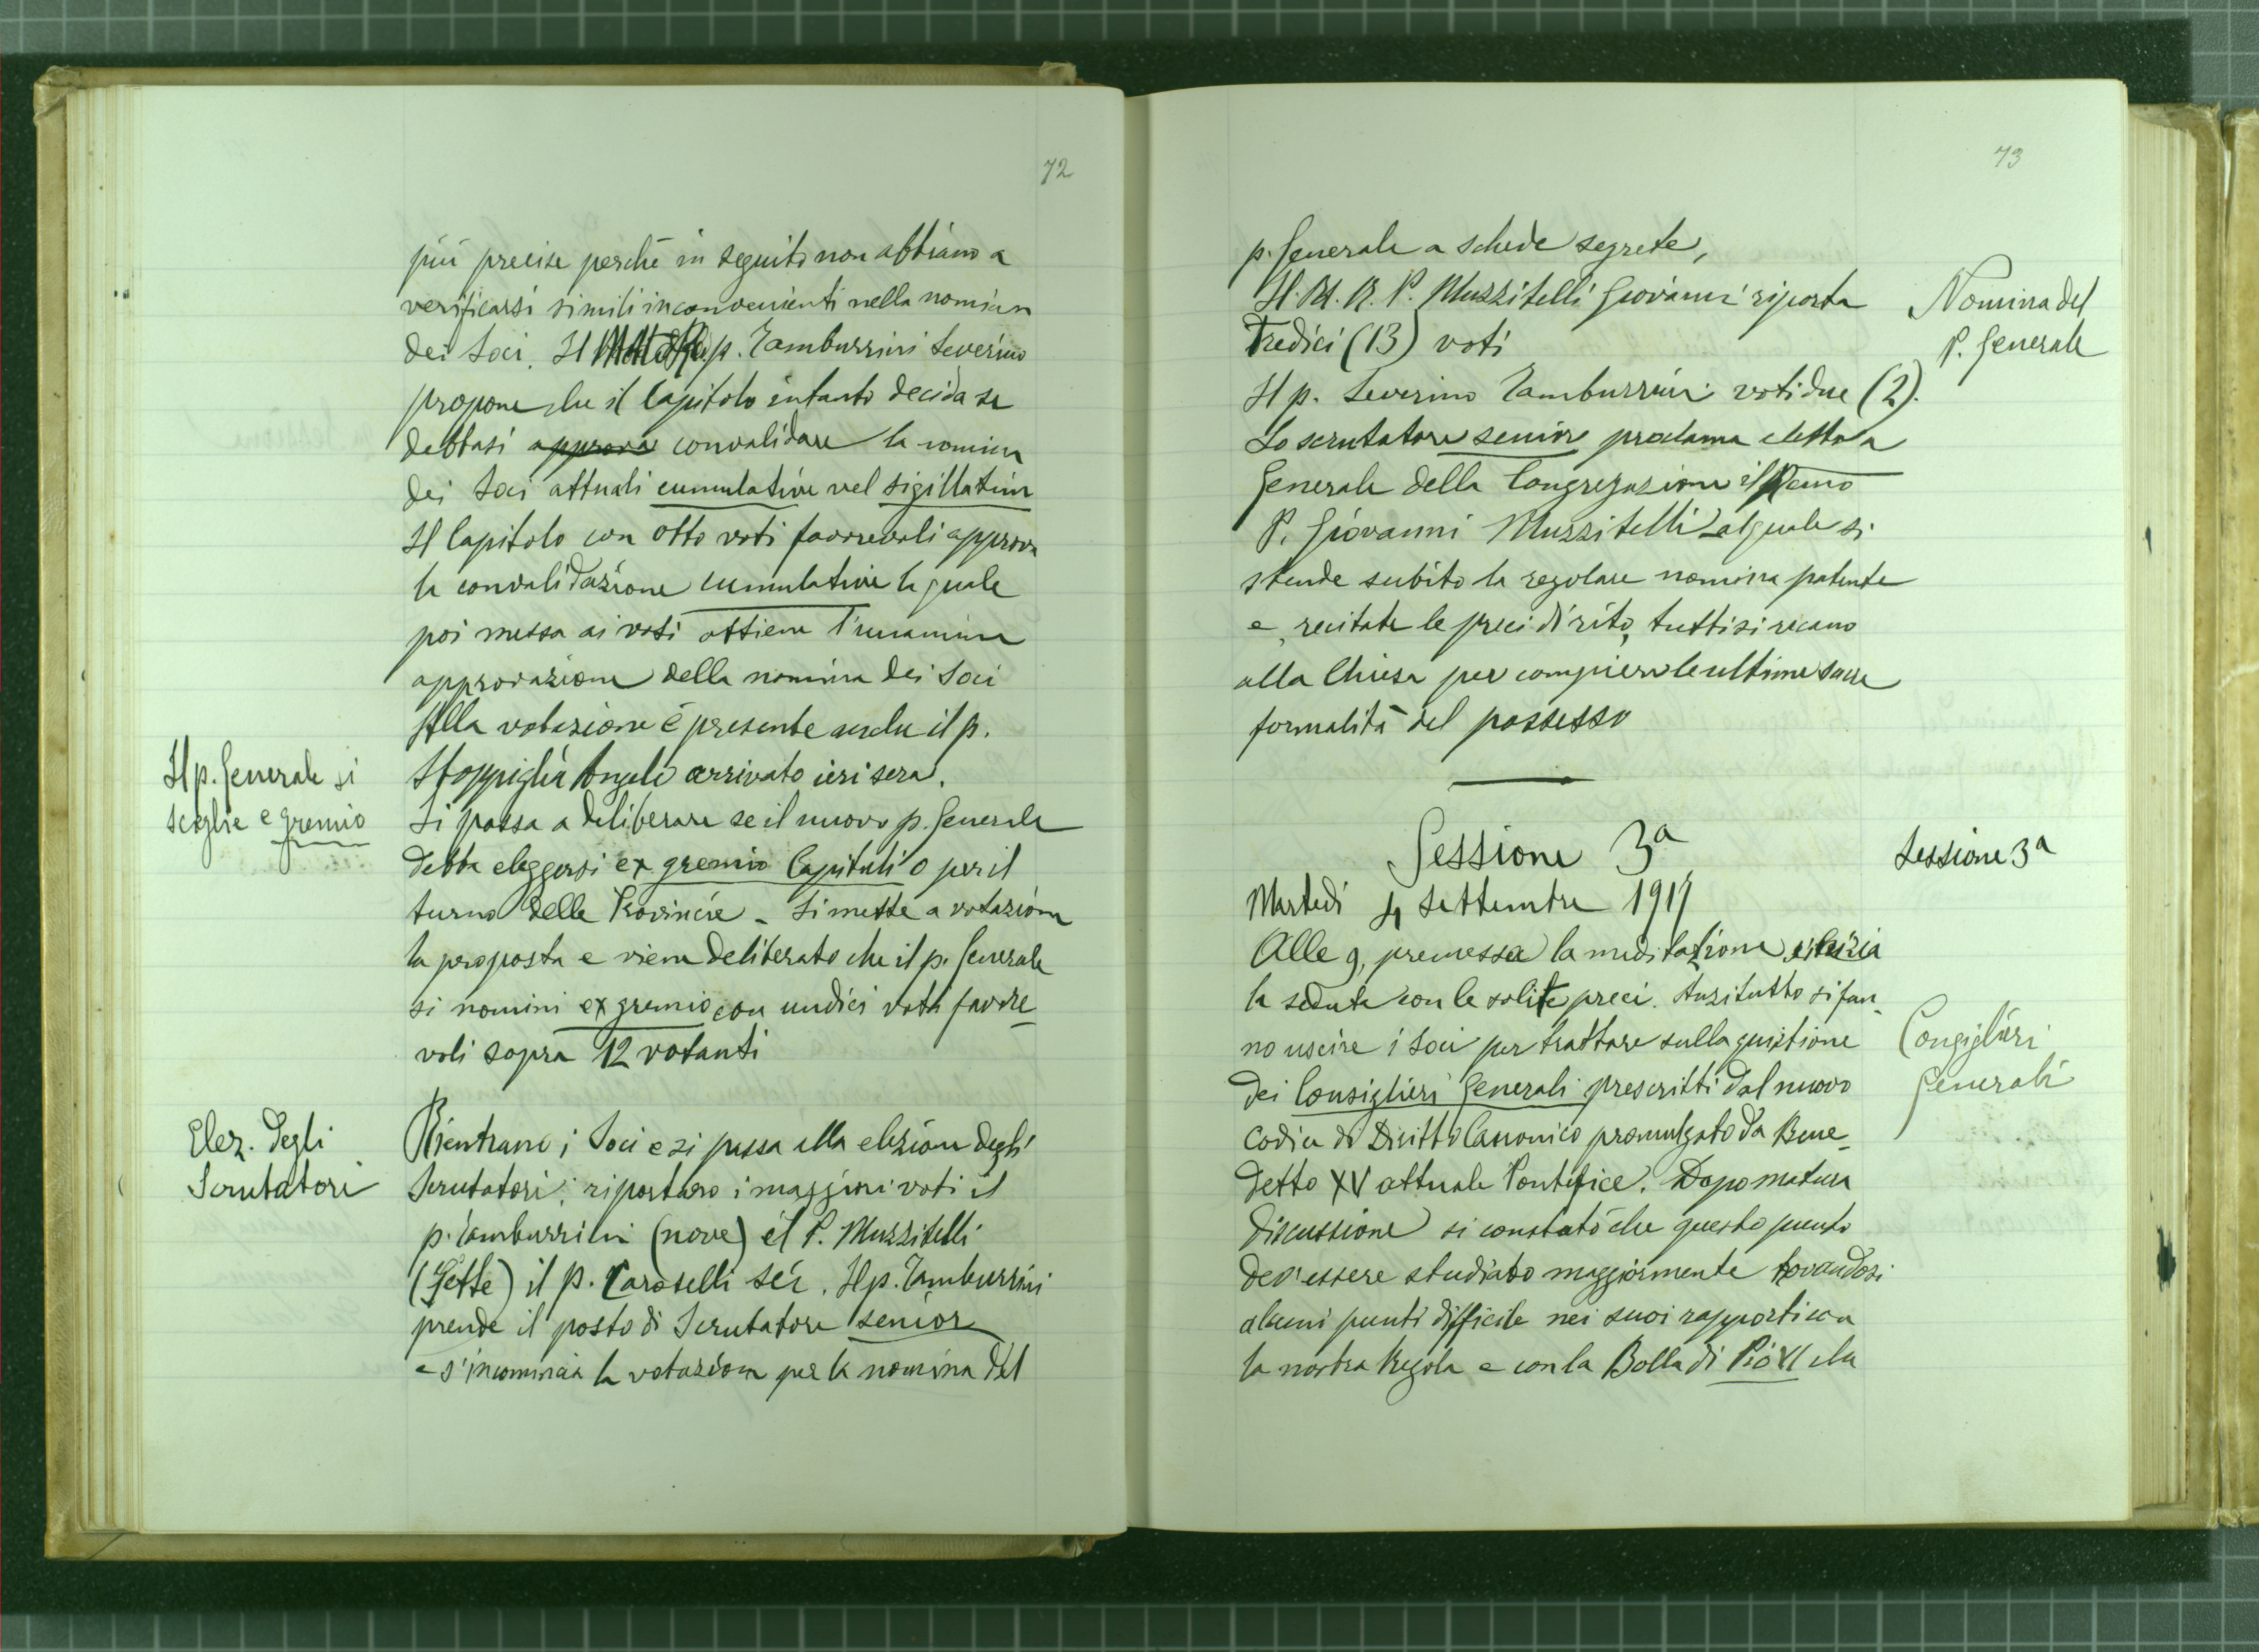 72
più precise perché in seguito non abbiano a
verificarsi simili inconvenienti nella nomina
dei Soci. Il p. Tamburrini Severino
propone che il Capitolo intanto decida se
debbasi approva convalidare la nomina
dei Soci attuali cumulative vel sigillatim
Il Capitolo con otto voti favorevoli approva
la convalidazione cumulative la quale
poi messa ai voti ottiene l'unanime
approvazione della nomina dei Soci
Alla votazione è presente anche il p.
Il p. Generale si
sceglie e gremio
Stoppiglia Angelo arrivato ieri sera.
Si passa a deliberare se il nuovo p. Generale
debba eleggersi ex gremio Capituli o per il
turno delle Provincie - Si mette a votazione
la proposta e viene deliberato che il p. Generale
si nomini ex gremio con undici voti favore-
voli sopra 12 votanti
Elez. degli
Scrutatori
Rientrano i Soci e si passa alla elezione degli
Scrutatori; riportano i maggiori voti il
p. Tamburrini (nove) il P. Muzzitelli
(Sette) il p. Caroselli sei. Il p. Tamburrini
prende il posto di Scrutatore senior
e s'incomincia la votazione per la nomina del
73
p. Generale a schede segrete,
Il M. R. P. Muzzitelli Giovanni riporta
Tredici (13) voti
Nomina del
P. Generale
Il p. Severino Tamburrini voti due (2).
Lo scrutatore senior proclama eletto a
Generale della Congregazione il Rmo
P. Giovanni Muzzitelli al quale si
stende subito la regolare nomina patente
e, recitate le preci di rito, tutti si recano
alla Chiesa per compiere le ultime sacre
formalità del possesso
Sessione 3ª
Sessione 3ª
Martedì 4 Settembre 1917
Alle 9, premessa la meditazione, si inizia
la seduta con le solite preci. Anzitutto si fan-
no uscire i Soci per trattare sulla quistione
Consiglieri
Generali
dei Consiglieri Generali prescritti dal nuovo
Codice di Diritto Canonico promulgato da Bene-
detto XV attuale Pontefice. Dopo matura
discussione si constatò che questo punto
dev'essere studiato maggiormente trovandosi
alcuni punti difficile nei suoi rapporti con
la nostra Regola e con la Bolla di Pio VI che